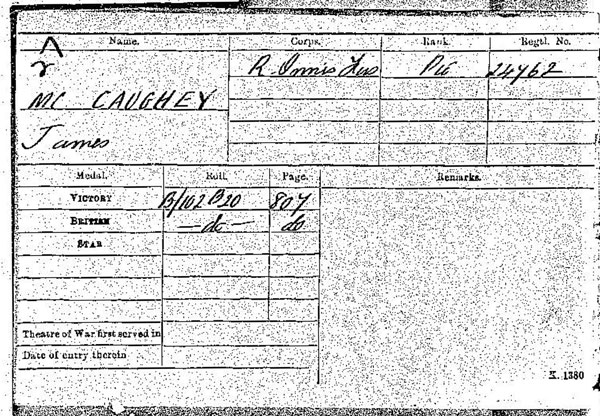 Name. Corps. Rank. Regtl. No.
R Innis Fus Pte 24762
MC CAUGHEY
James
Medal. Roll. Page. Remarks.
VICTORY B/102 B20 807
BRITISH —do— do
STAR
Theatre of War first served in
Date of entry therein
K. 1380